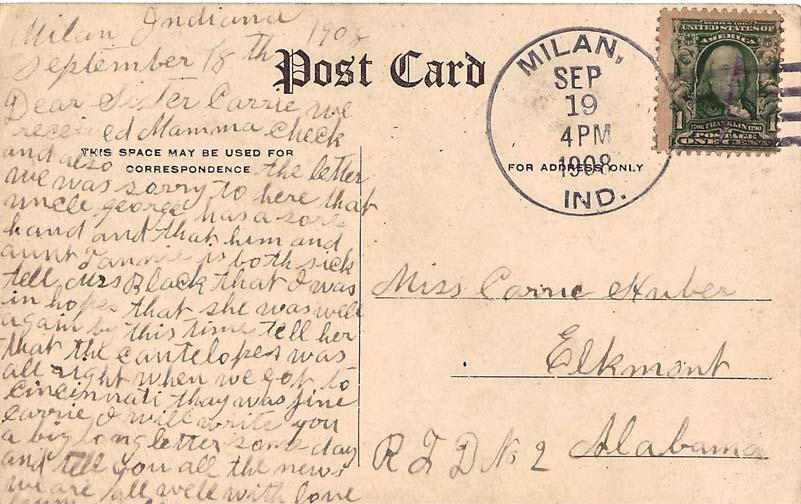 Milan Indiana
September 18th 1908
Dear Sister Carrie we
received Mamma check
and also the letter
we was sorry to here that
uncle george has a sore
hand and that him and
aunt Fannie is both sick
tell Mrs Black that I was
in hopes that she was well
again by this time tell her
that the cantelopes was
all right when we got to
Cincinnati thay was fine
Carrie I will write you
a big long letter some day
and tell you all the news
we are all well with love
Post Card
THIS SPACE MAY BE USED FOR
CORRESPONDENCE
FOR ADDRESS ONLY
MILAN,
SEP
19
4PM
1908
IND.
SERIES 1902
UNITED STATES OF
AMERICA
1 1
1706 FRANKLIN 1790
POSTAGE
ONE CENT
Miss Carrie Huber
Elkmont
R F D No 2 Alabama